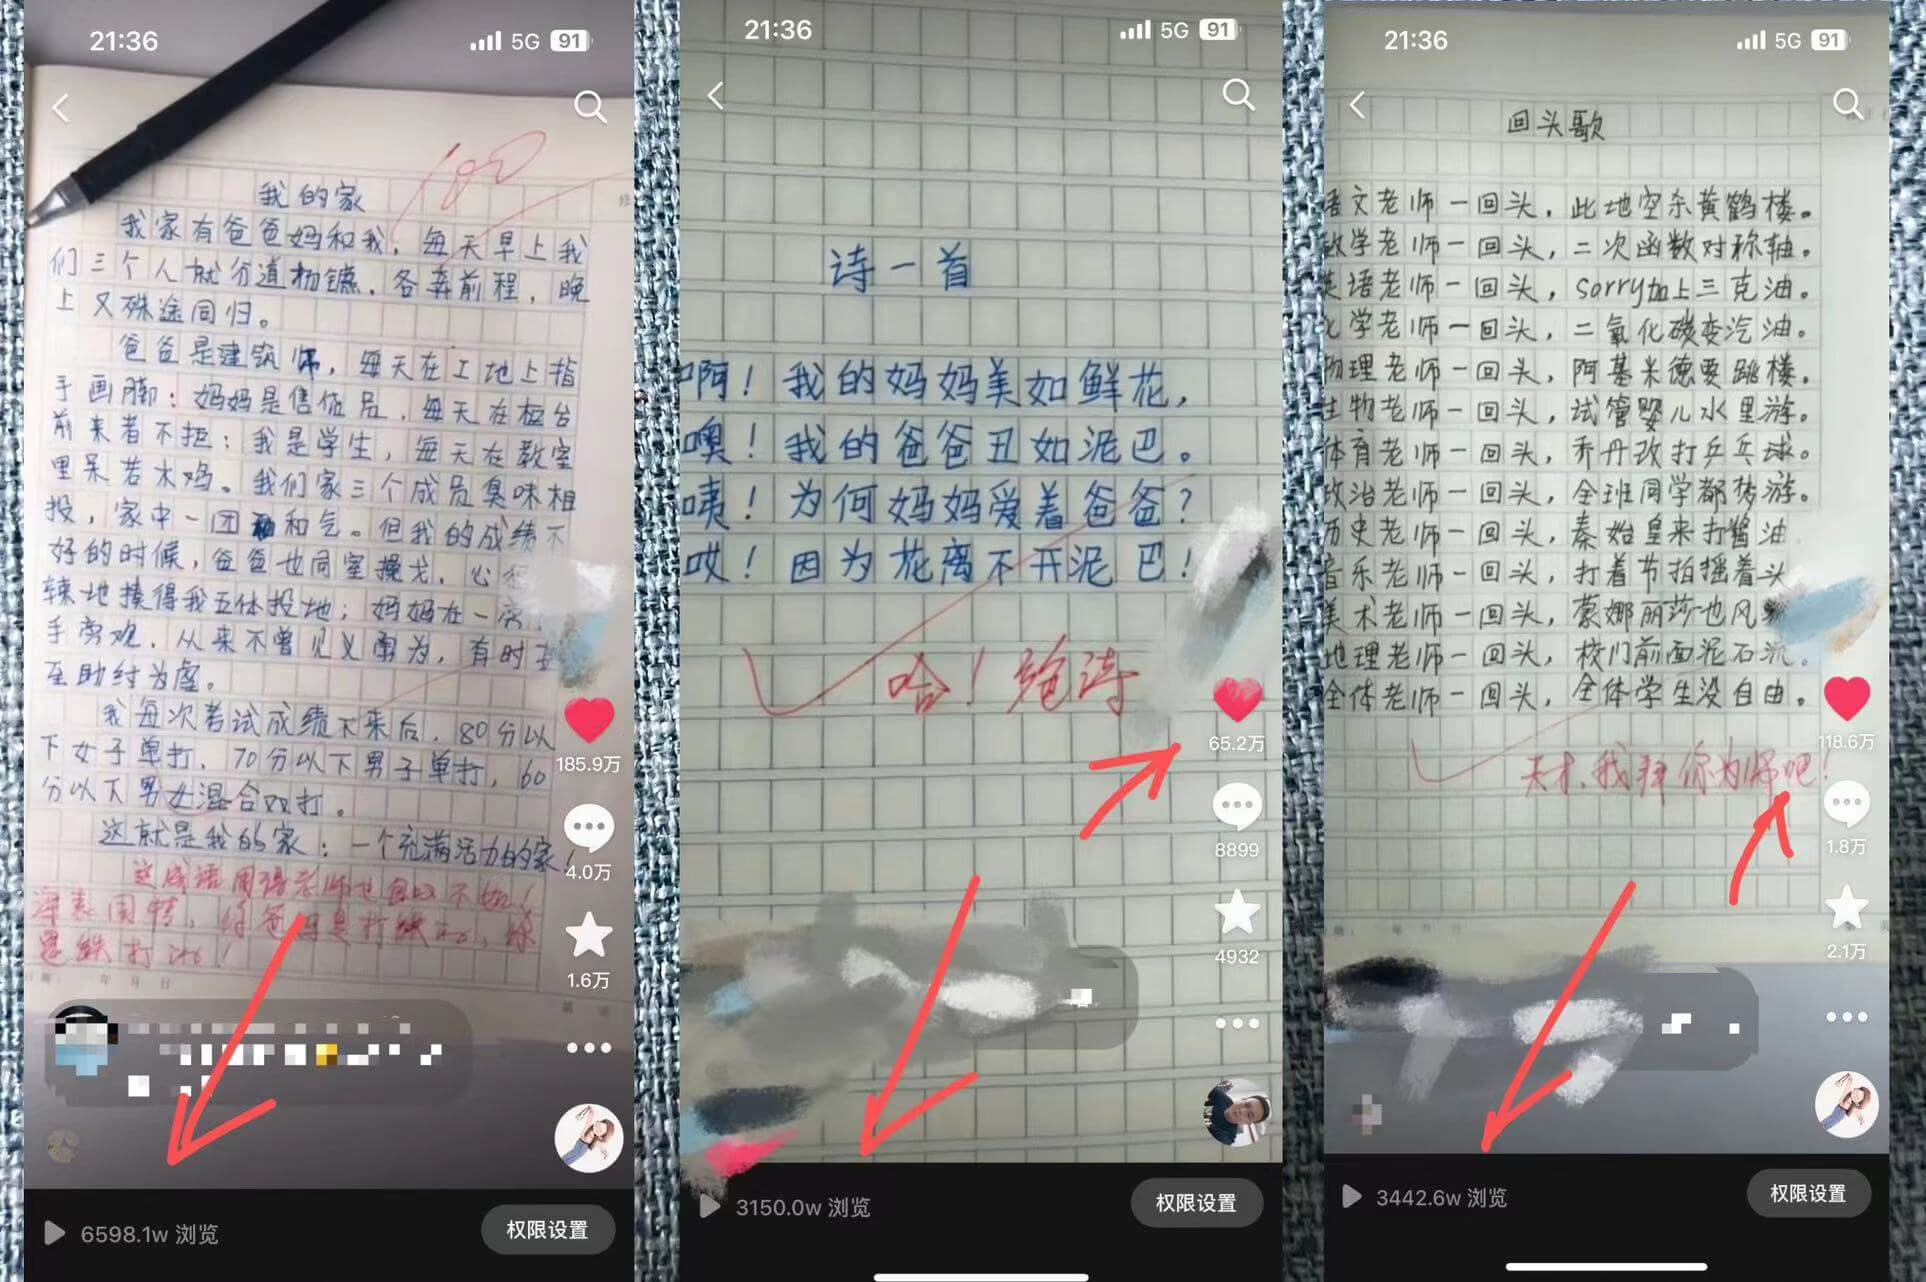 21:36
5G 91
100
我的家
我家有爸爸妈和我，每天早上我
们三个人就分道扬镳，各奔前程，晚
上又殊途同归。
爸爸是建筑师，每天在工地上指
手画脚；妈妈是售货员，每天在柜台
前来者不拒；我是学生，每天在教室
里呆若木鸡。我们家三个成员臭味相
投，家中一团和气。但我的成绩不
好的时候，爸爸也同室操戈，心
辣地揍得我五体投地；妈妈在一旁
手旁观，从来不曾见义勇为，有时
至助纣为虐。
我每次考试成绩下来后，80分以
下女子单打，70分以下男子单打，60
分以下男女混合双打。
这就是我的家：一个充满活力的家！
这成语用得老师也自以不如！
185.9万
4.0万
1.6万
年 月 日
6598.1w 浏览
权限设置
21:36
5G 91
诗一首
啊！我的妈妈美如鲜花，
噢！我的爸爸丑如泥巴。
咦！为何妈妈爱着爸爸？
哎！因为花离不开泥巴！
哈！绝诗
65.2万
8899
4932
3150.0w 浏览
权限设置
21:36
5G 91
回头歌
语文老师一回头，此地空余黄鹤楼。
数学老师一回头，二次函数对称轴。
英语老师一回头，sorry加上三克油。
化学老师一回头，二氧化碳变汽油。
物理老师一回头，阿基米德要跳楼。
生物老师一回头，试管婴儿水里游。
体育老师一回头，乔丹改打乒乓球。
政治老师一回头，全班同学都梦游。
历史老师一回头，秦始皇来打酱油
音乐老师一回头，打着节拍摇着头
美术老师一回头，蒙娜丽莎也风
地理老师一回头，校门前面泥石流。
全体老师一回头，全体学生没自由。
天才，我拜你为师吧！
118.6万
1.8万
2.1万
3442.6w 浏览
权限设置